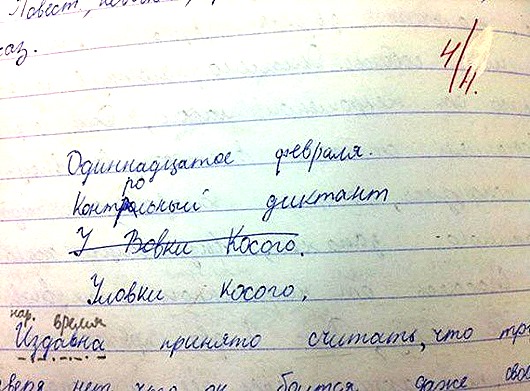 каз.
4/4.
Одиннадцатое февраля.
Контрольный диктант
У Вовки Косого.
Уловки Косого.
нар. время
Издавна принято считать, что
зверя нет, чего он боится даже